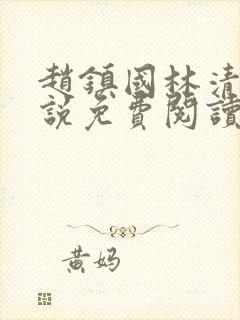 趙鎮國林清
說免費閱讀
黃妈